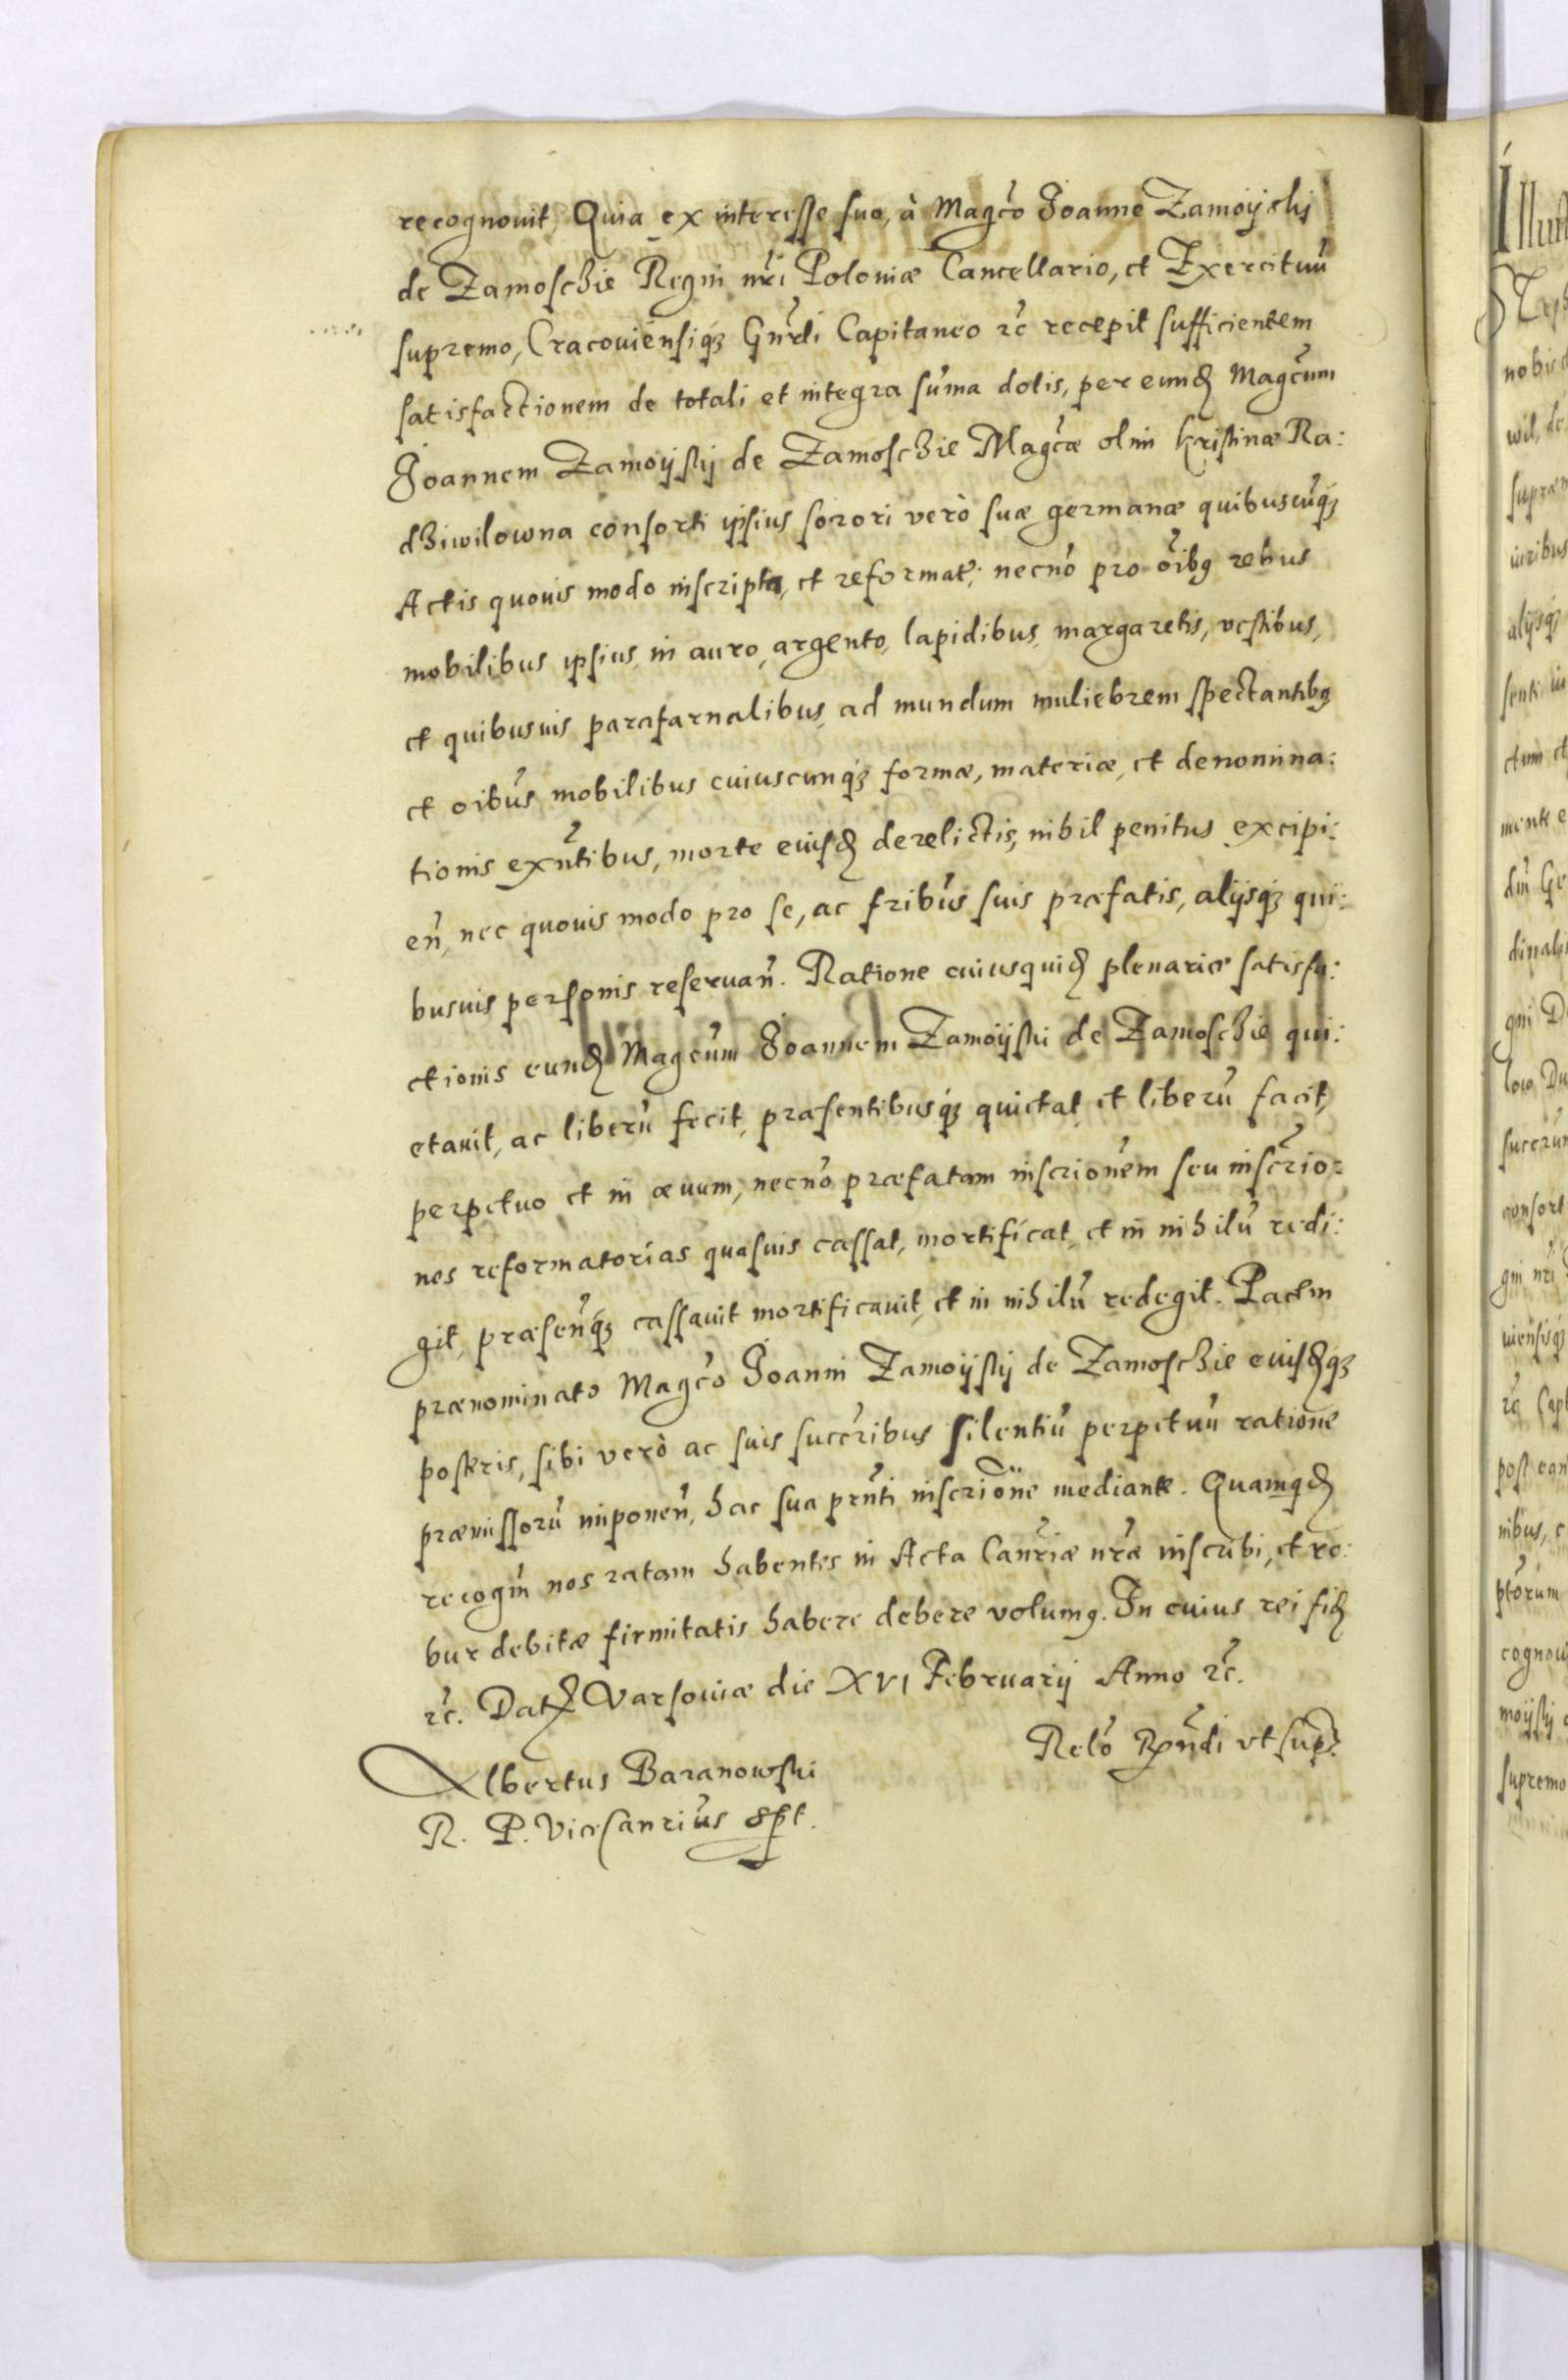 recognouit, Quia ex interesse suo, à Magco Joanne Zamoÿskj
de Zamoschie Regni nri Poloniæ Cancellario, et Exercituũ
supremo, Cracouiensiq₃ Gnrli Capitaneo rc recepit sufficientem
satisfactionem de totali et integra sũma dotis, per eund Magcum
Joannem Zamoÿskj de Zamoschie Magcæ olim Kristinæ Ra:
dhiwilowna consorti ipsius sorori verò suæ germanæ quibuscuq₃
Actis quouis modo inscripta, et reformat; necnõ pro õibg rebus
mobilibus ipsius, in auro, argento, lapidibus, margaretis, vestibus,
et quibusuis parafarnalibus, ad mundum muliebrem spectantibg
et oibus mobilibus cuiuscunq₃ formæ, materiæ, et denomina:
tionis exñtibus, morte eiusd derelictis, nihil penitus excipi:
eñ, nec quouis modo pro se, ac fribus suis præfatis, alijsq₃ qui:
busuis personis reseruañ. Ratione cuiusquid plenariæ satisfa:
ctionis eund Magcum Joannem Zamoÿski de Zamoschie qui:
etauit, ac liberũ fecit, præsentibusq₃ quietat, et liberũ facit,
perpetuo et in æuum, necnõ præfatam inscrionem seu inscrio:
nes reformatorias quasuis cassat, mortificat, et in nihilũ redi:
git, præsenq₃ cassauit mortificauit, et in nihilũ redegit. Pacem
prænominato Magco Joanni Zamoÿskj de Zamoschie eiusdq₃
posteris, sibi verò ac suis succribus silentiũ perpetuũ ratione
præmissorũ imponeñ, hac sua prñti inscrione mediante. Quamqd
recogñ nos ratam habentes in Acta Canriæ nræ inscribi, et ro:
bur debitæ firmitatis habere debere volumg. In cuius rei fid
rc. Dat Varsouiæ die XVI Februarij Anno rc.
Relõ Rñdi vt sup.
Albertus Baranowski
R. P. Vicecanrius spt.